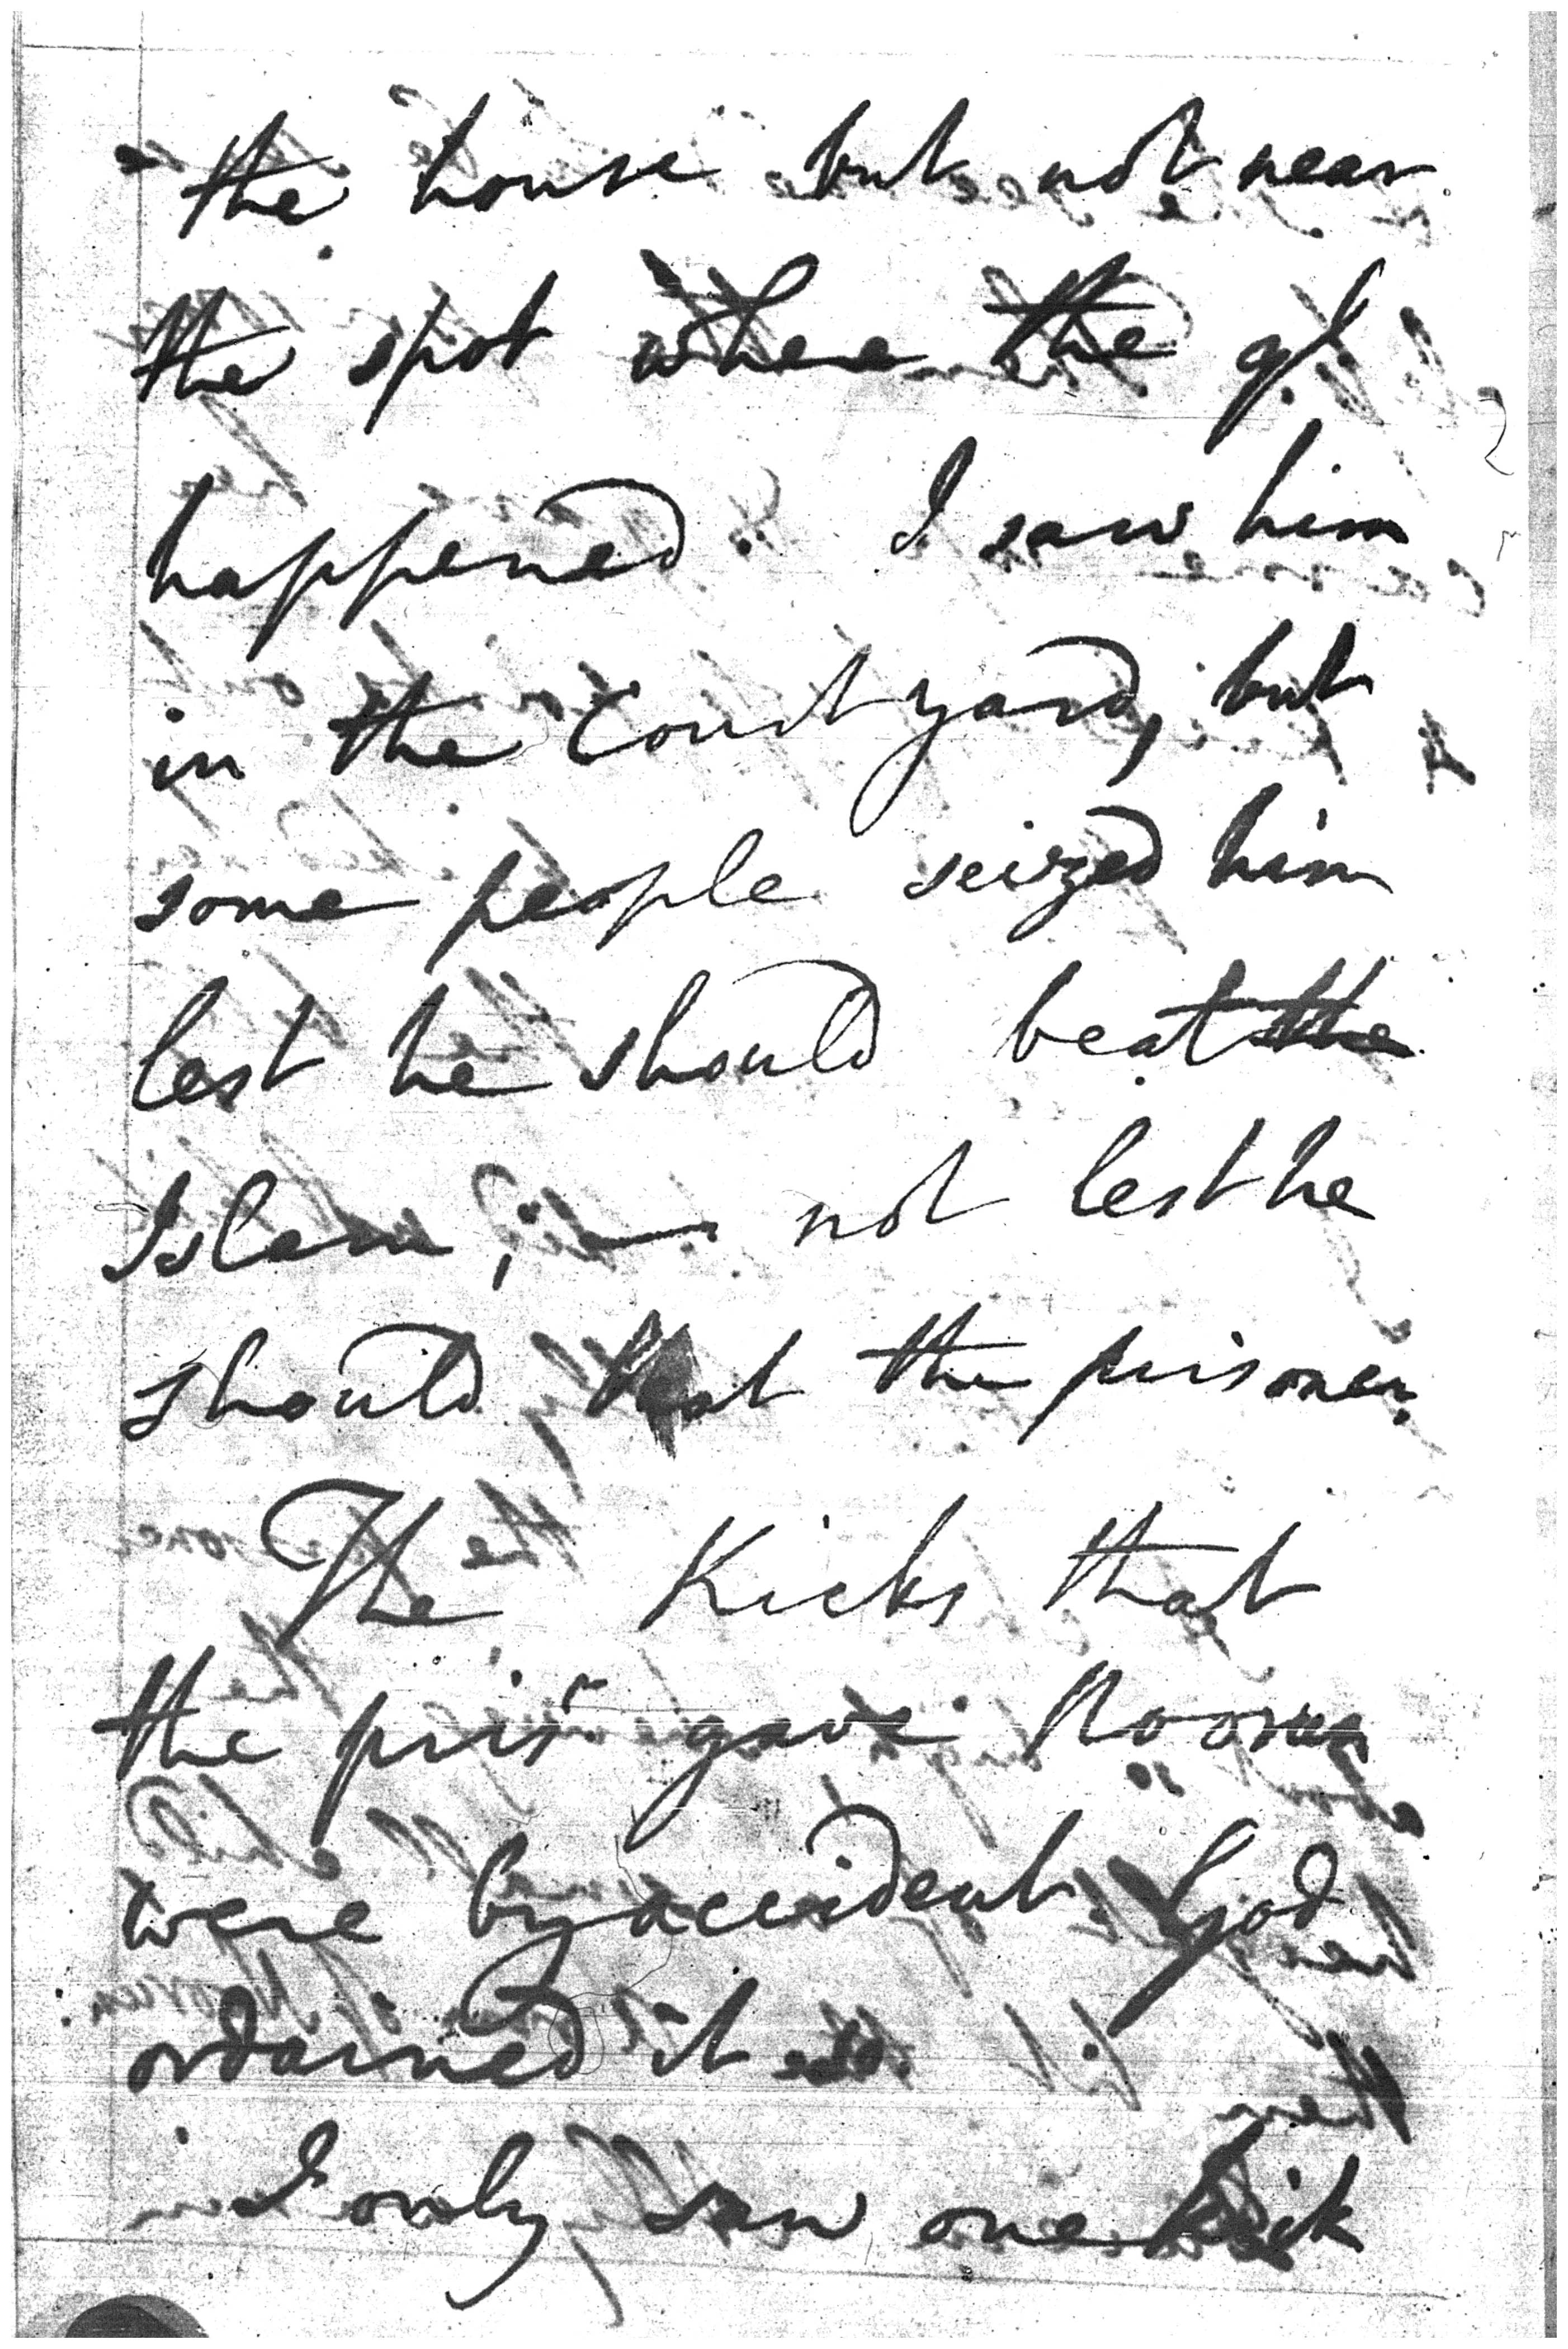 the house but not near
the spot where the qt
happened I saw him
in the Court yard, but
some people seized him
lest he should beat the
Islam, — not lest he
should beat the prisoner.
The Kicks that
the prisr gave Noorun
were by accident God
ordained it so.
I only saw one kick